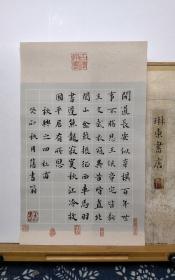 聞道長安似弈棋百年世
事不勝悲王侯第宅皆新
主文武衣冠異昔時直北
關山金鼓振征西車馬羽
書遲魚龍寂寞秋江冷故
國平居有所思
秋興之四杜甫
秋月書
琳東書房